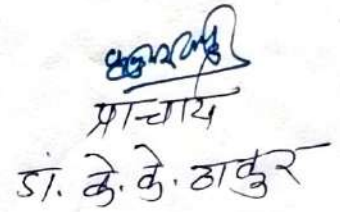 प्राचार्य
डॉ. के. के. ठाकुर